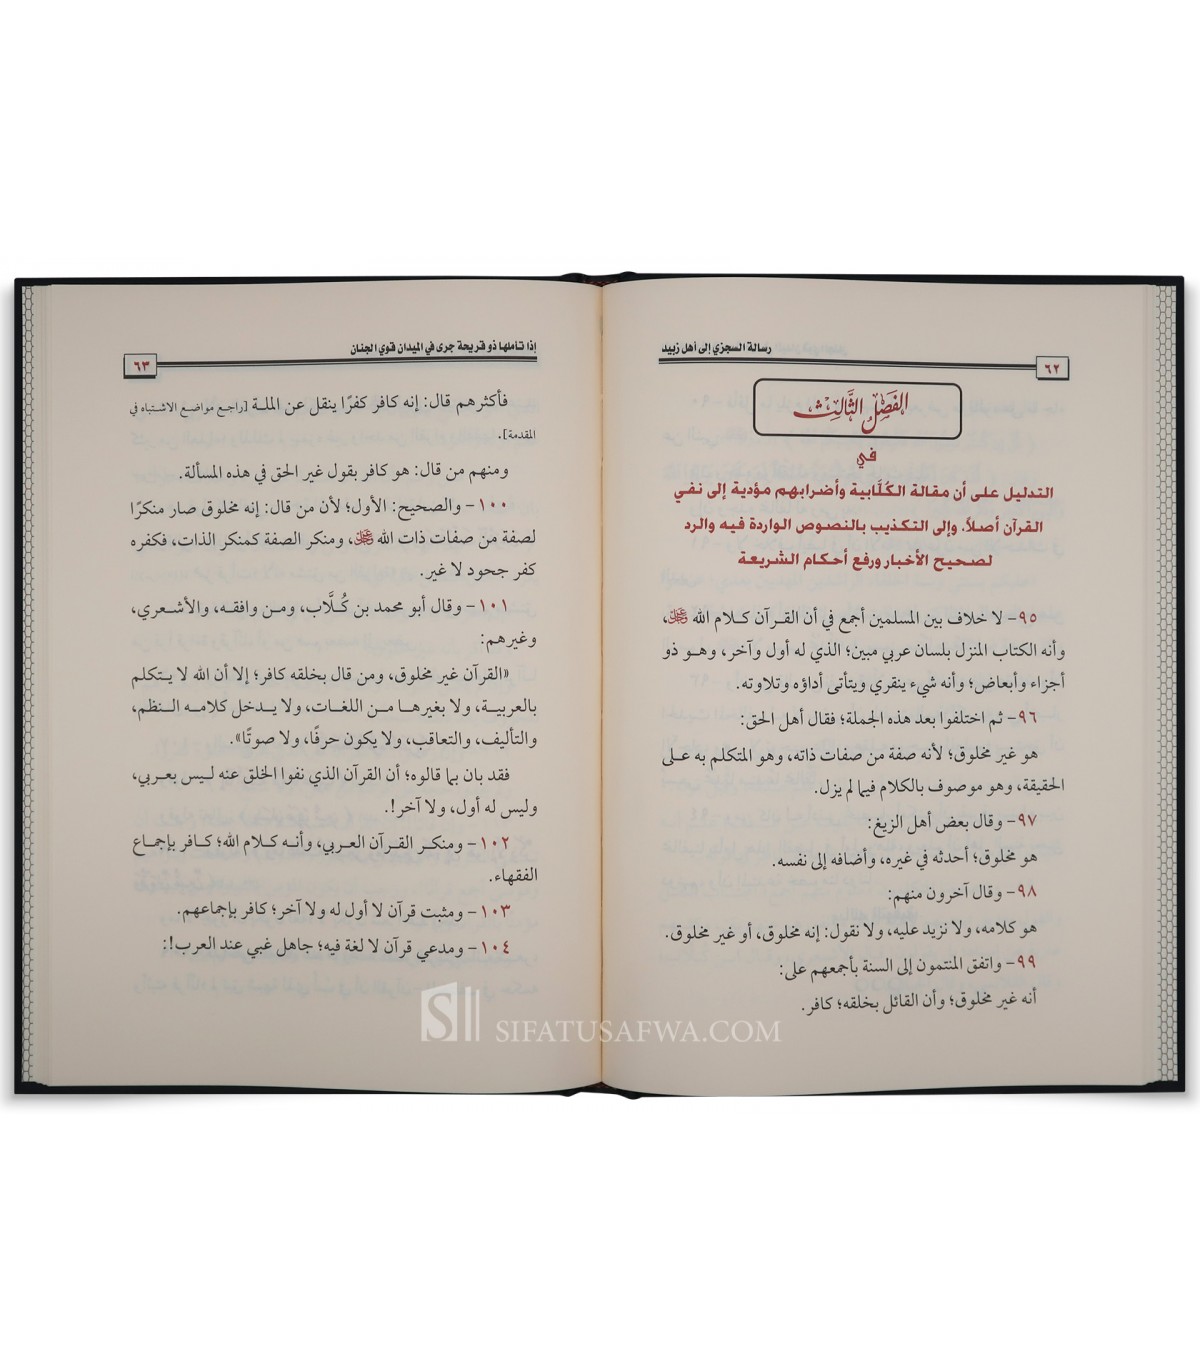 رسالة السجزي إلى أهل زبيد
٦٢
الفصل الثالث
في
التدليل على أن مقالة الكُلَّابية وأضرابهم مؤدية إلى نفي
القرآن أصلاً، وإلى التكذيب بالنصوص الواردة فيه والرد
لصحيح الأخبار ورفع أحكام الشريعة
٩٥- لا خلاف بين المسلمين أجمع في أن القرآن كلام الله ﷻ،
وأنه الكتاب المنزل بلسان عربي مبين؛ الذي له أول وآخر، وهو ذو
أجزاء وأبعاض؛ وأنه شيء ينقري ويتأتى أداؤه وتلاوته.
٩٦- ثم اختلفوا بعد هذه الجملة؛ فقال أهل الحق:
هو غير مخلوق؛ لأنه صفة من صفات ذاته، وهو المتكلم به على
الحقيقة، وهو موصوف بالكلام فيما لم يزل.
٩٧- وقال بعض أهل الزيغ:
هو مخلوق؛ أحدثه في غيره، وأضافه إلى نفسه.
٩٨- وقال آخرون منهم:
هو كلامه، ولا نزيد عليه، ولا نقول: إنه مخلوق، أو غير مخلوق.
٩٩- واتفق المنتمون إلى السنة بأجمعهم على:
أنه غير مخلوق؛ وأن القائل بخلقه؛ كافر.
إذا تأملها ذو قريحة جرى في الميدان قوي الجنان
٦٣
فأكثرهم قال: إنه كافر كفرًا ينقل عن الملة [راجع مواضع الاشتباه في
المقدمة].
ومنهم من قال: هو كافر بقول غير الحق في هذه المسألة.
١٠٠- والصحيح: الأول؛ لأن من قال: إنه مخلوق صار منكرًا
لصفة من صفات ذات الله ﷻ، ومنكر الصفة كمنكر الذات، فكفره
كفر جحود لا غير.
١٠١- وقال أبو محمد بن كُلَّاب، ومن وافقه، والأشعري،
وغيرهم:
«القرآن غير مخلوق، ومن قال بخلقه كافر؛ إلا أن الله لا يتكلم
بالعربية، ولا بغيرها من اللغات، ولا يدخل كلامه النظم،
والتأليف، والتعاقب، ولا يكون حرفًا، ولا صوتًا».
فقد بان بما قالوه؛ أن القرآن الذي نفوا الخلق عنه ليس بعربي،
وليس له أول، ولا آخر!.
١٠٢- ومنكر القرآن العربي، وأنه كلام الله؛ كافر بإجماع
الفقهاء.
١٠٣- ومثبت قرآن لا أول له ولا آخر؛ كافر بإجماعهم.
١٠٤- ومدعي قرآن لا لغة فيه؛ جاهل غبي عند العرب!:
SIFATUSAFWA.COM